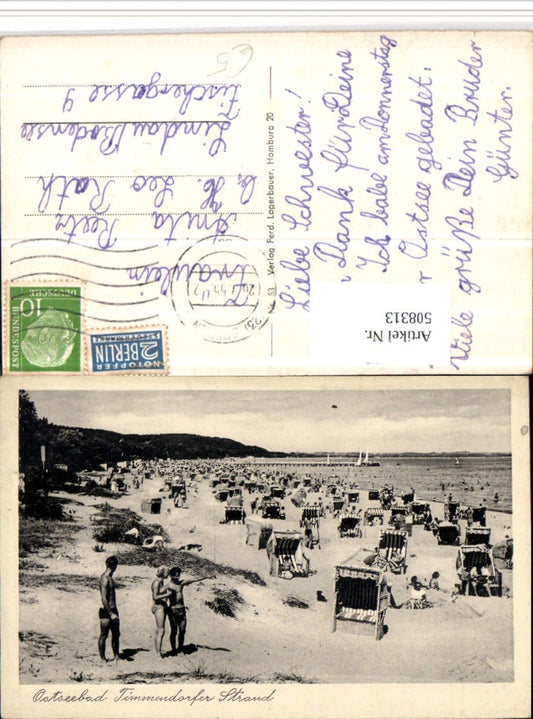 Liebe Schwester!
Dank für Deine
Ich habe am Donnerstag
r Ostsee gebadet.
Viele grüße Dein Bruder
Günter.
Verlag Ferd. Lagerbauer, Hamburg 20
53
Fräulein
Anita Reetz
b. H. Leo Rath
Lindau/Bodensee
Fischergasse 4
10
DEUTSCHE
BUNDESPOST
2 BERLIN
NOTOPFER
STEUERMARKE
Artikel Nr.
508313
Ostseebad Timmendorfer Strand